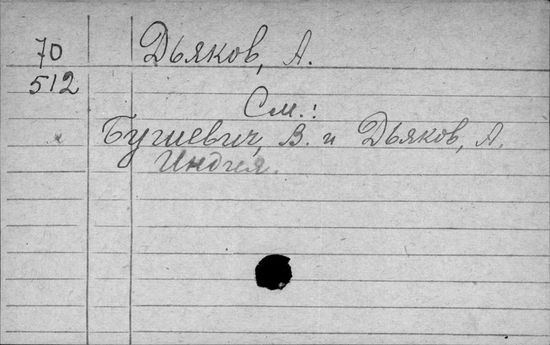 70
512
Дьяков, А.
См.:
Бушевич, В. и Дьяков, А.
Индия.